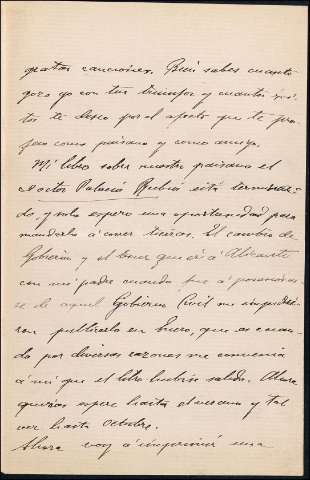 gratas canciones. Bien sabes cuanto
gozo yo con tus triunfos y cuantos éxi-
tos te deseo por el afecto que te pro-
feso como paisano y como amigo.
Mi libro sobre nuestro paisano el
doctor Palacio Rubios está termina-
do, y solo espero una oportunidad para
mandarlo á correr tierras. El cambio de
Gobierno y el tener que ir á Alicante
con mi padre cuando fue á posesionar-
se de aquel Gobierno Civil me impidie-
ron publicarlo en Enero, que es cuan-
do por diversas razones me convenia
á mi que el libro hubiera salido. Ahora
quizás espere hasta el verano y tal
vez hasta Octubre.
Ahora voy á imprimir una